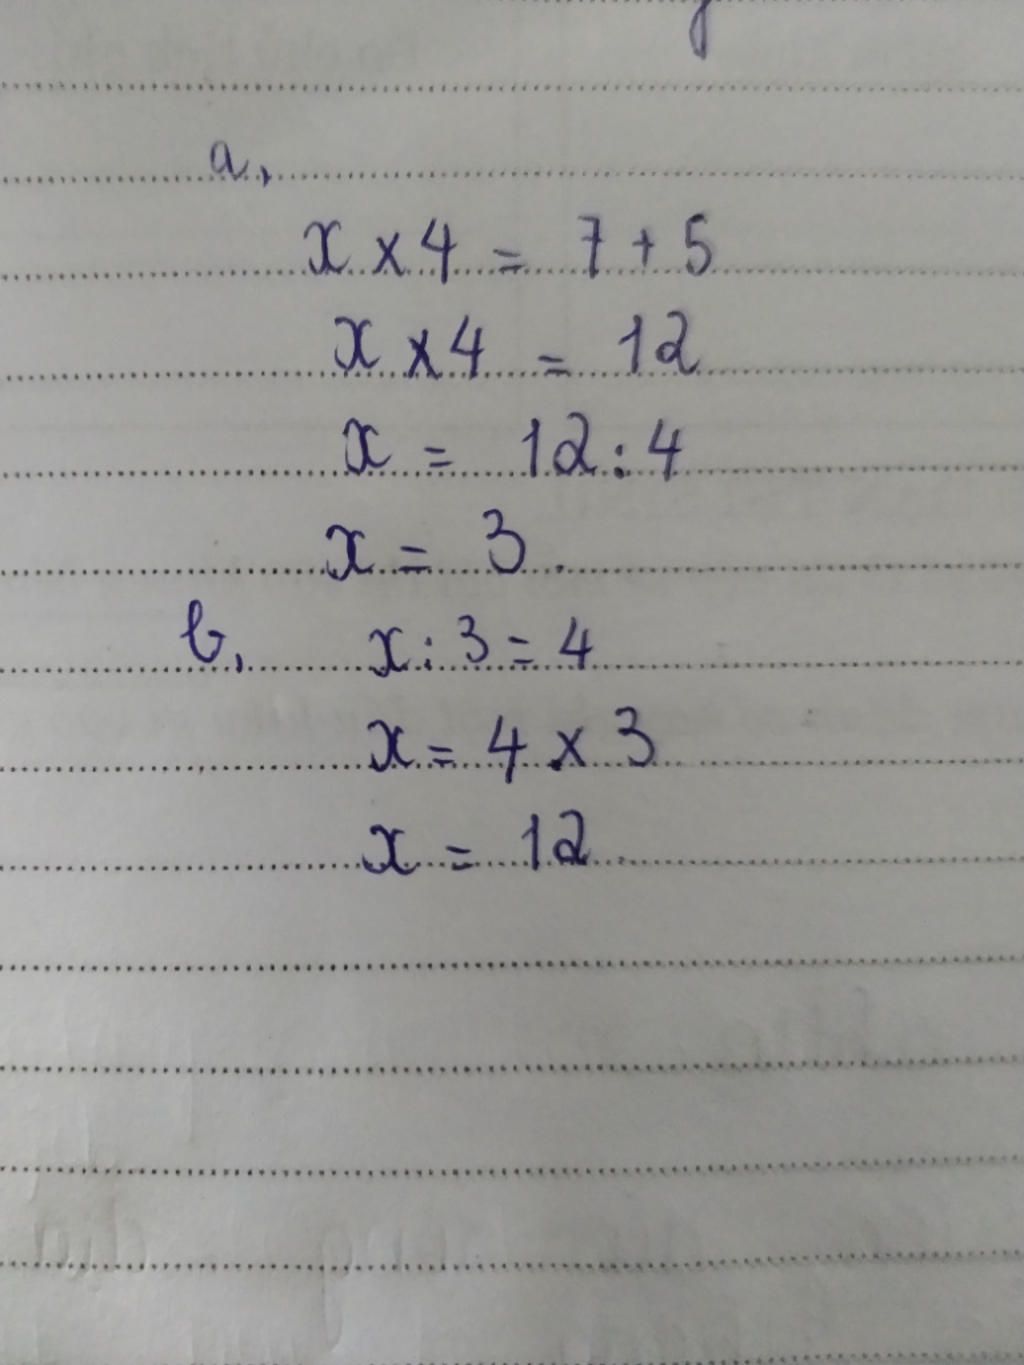 a,
x × 4 = 7 + 5
x × 4 = 12
x = 12 : 4
x = 3.
b, x : 3 = 4
x = 4 × 3
x = 12